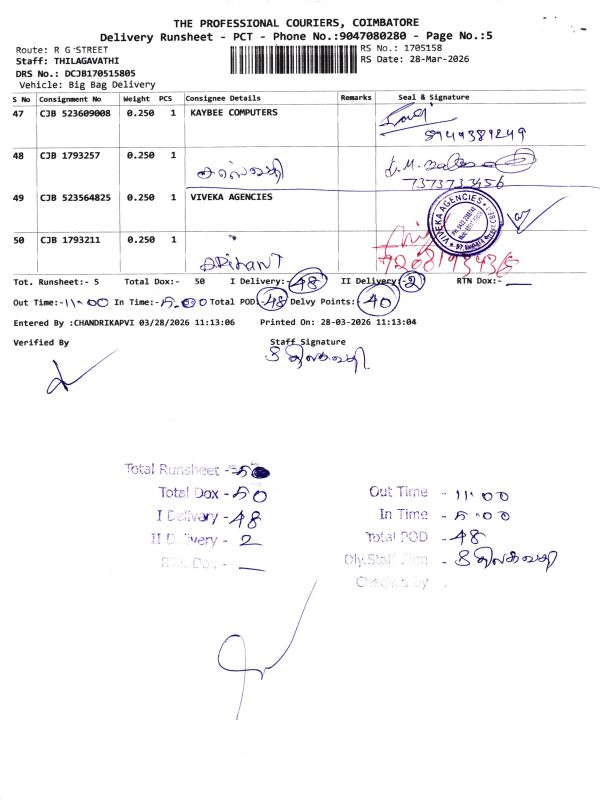 THE PROFESSIONAL COURIERS, COIMBATORE
Delivery Runsheet - PCT - Phone No.:9047080280 - Page No.:5
Route: R G STREET
RS No.: 1705158
Staff: THILAGAVATHI
RS Date: 28-Mar-2026
DRS No.: DCJB170515805
Vehicle: Big Bag Delivery
S No Consignment No Weight PCS Consignee Details Remarks Seal & Signature
47 CJB 523609008 0.250 1 KAYBEE COMPUTERS
8949389249
48 CJB 1793257 0.250 1
7373733456
49 CJB 523564825 0.250 1 VIVEKA AGENCIES
VIVEKA AGENCIES
50 CJB 1793211 0.250 1
Tot. Runsheet:- 5 Total Dox:- 50 I Delivery:- 48 II Delivery:- 2 RTN Dox:- __
Out Time:- 11-00 In Time:- 5.00 Total POD:- 48 Delvy Points:- 40
Entered By :CHANDRIKAPVI 03/28/2026 11:13:06 Printed On: 28-03-2026 11:13:04
Verified By Staff Signature
திலகவதி
Total Runsheet - 5
Total Dox - 50
I Delivery - 48
II Delivery - 2
RTN Dox - __
Out Time - 11.00
In Time - 5.00
Total POD - 48
Dly.Staff Sign - திலகவதி
Checked by